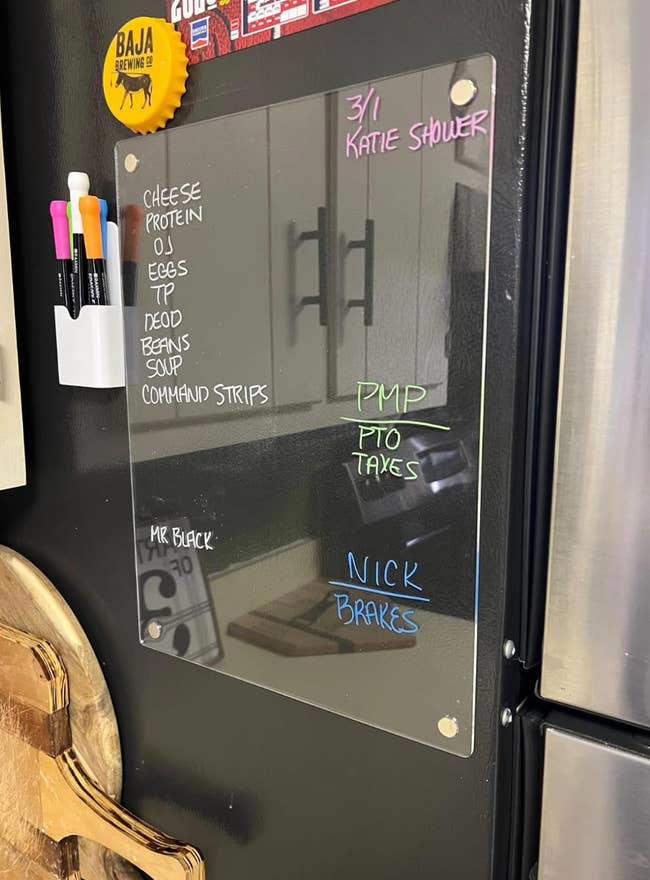 BAJA
BREWING CO
3/1
KATIE SHOWER
CHEESE
PROTEIN
OJ
EGGS
TP
DEOD
BEANS
SOUP
COMMAND STRIPS
PMP
PTO
TAXES
MR BLACK
NICK
BRAKES